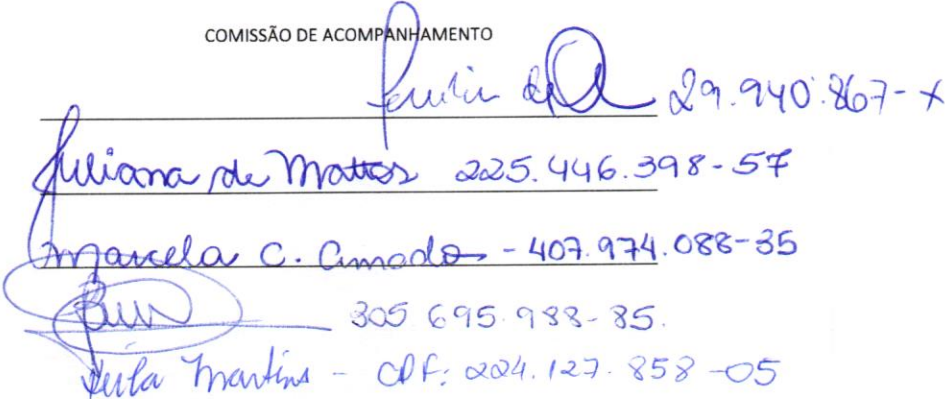 COMISSÃO DE ACOMPANHAMENTO
29.940.867-X
Juliana de Mattos 225.446.398-57
Marcela C. Amado - 407.974.088-35
305 695.988-85.
Martins - CPF: 224.127.858-05